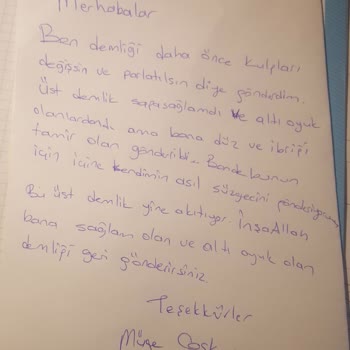 Merhabalar
Ben demliği daha önce kulpları
değişsin ve parlatılsın diye gönderdim.
Üst demlik sapasağlamdı ve altı oyuk
olanlardandı ama bana düz ve ibriği
tamir olan gönderildi. Bende bunun
için içine kendimin asıl süzgecini gönderiyorum
Bu üst demlik yine akıtıyor. İnşaAllah
bana sağlam olan ve altı oyuk olan
demliği geri gönderirsiniz.
Teşekkürler
Müge